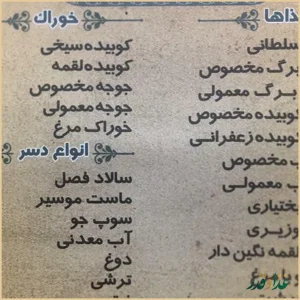 ذاها
سلطانی
برگ مخصوص
برگ معمولی
وبیده مخصوص
وبیده زعفرانی
مخصوص
معمولی
ختیاری
وزیری
لقمه نگین دار
با مرغ
خوراک
کوبیده سیخی
کوبیده لقمه
جوجه مخصوص
جوجه معمولی
خوراک مرغ
انواع دسر
سالاد فصل
ماست موسیر
سوپ جو
آب معدنی
دوغ
ترشی